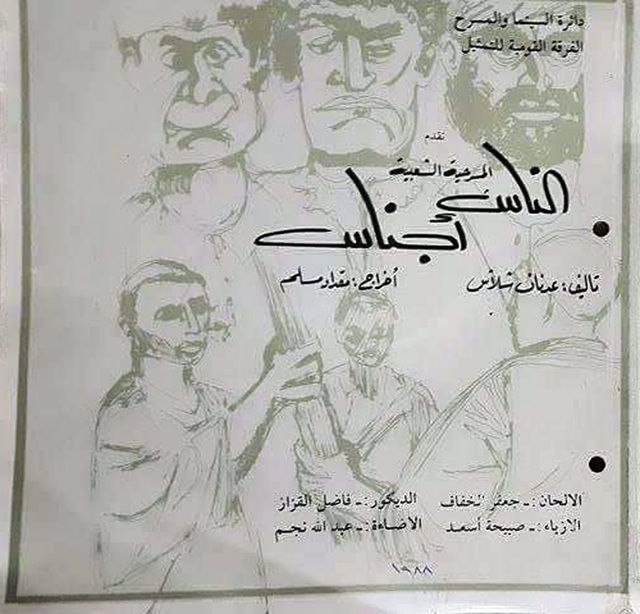 دائرة السينما والمسرح
الفرقة القومية للتمثيل
تقدم
المسرحية الشعبية
الناس أجناس
تاليف: عدنان شلاش
أخراج: مقداد مسلم
الالحان: ـ جعفر الخفاف
الديكور: ـ فاضل القزاز
الازياء: ـ صبيحة أسعد
الأضاءة: ـ عبد الله نجم
١٩٨٨